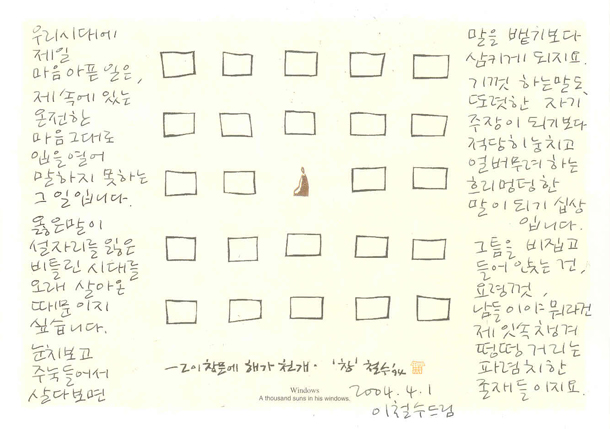 우리시대에
제일
마음아픈 일은,
제 속에 있는
온전한
마음그대로
입을열어
말하지 못하는
그 일입니다.
옳은말이
설자리를 잃은
비틀린 시대를
오래 살아온
때문이지
싶습니다.
눈치보고
주눅들어서
살다보면
말을 뱉기보다
삼키게 되지요.
기껏 하는말도,
또렷한 자기
주장이 되기보다
적당히눙치고
얼버무려 하는
흐리멍덩한
말이 되기 십상
입니다.
그틈을 비집고
들어 앉는 건,
요령껏,
남들이야 뭐라건
제 잇속챙겨
떵떵 거리는
파렴치한
존재들이지요.
그이 창문에 해가 천개. '창' 철수'94
Windows
A thousand suns in his windows.
2004.4.1
이철수드림